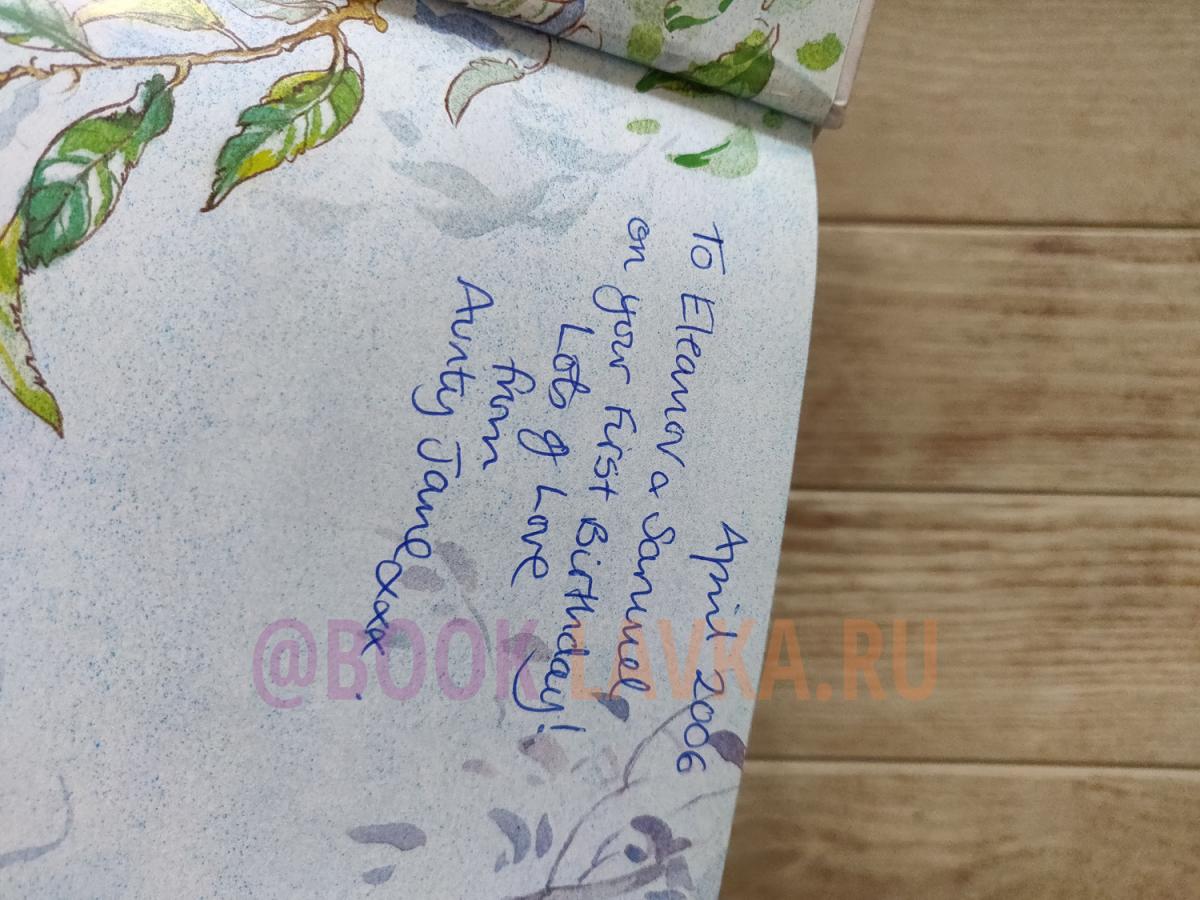 April 2006
To Eleanor & Samuel,
on your First Birthday!
Lots of Love
from
Aunty Jane xxx
@BOOK-LAVKA.RU